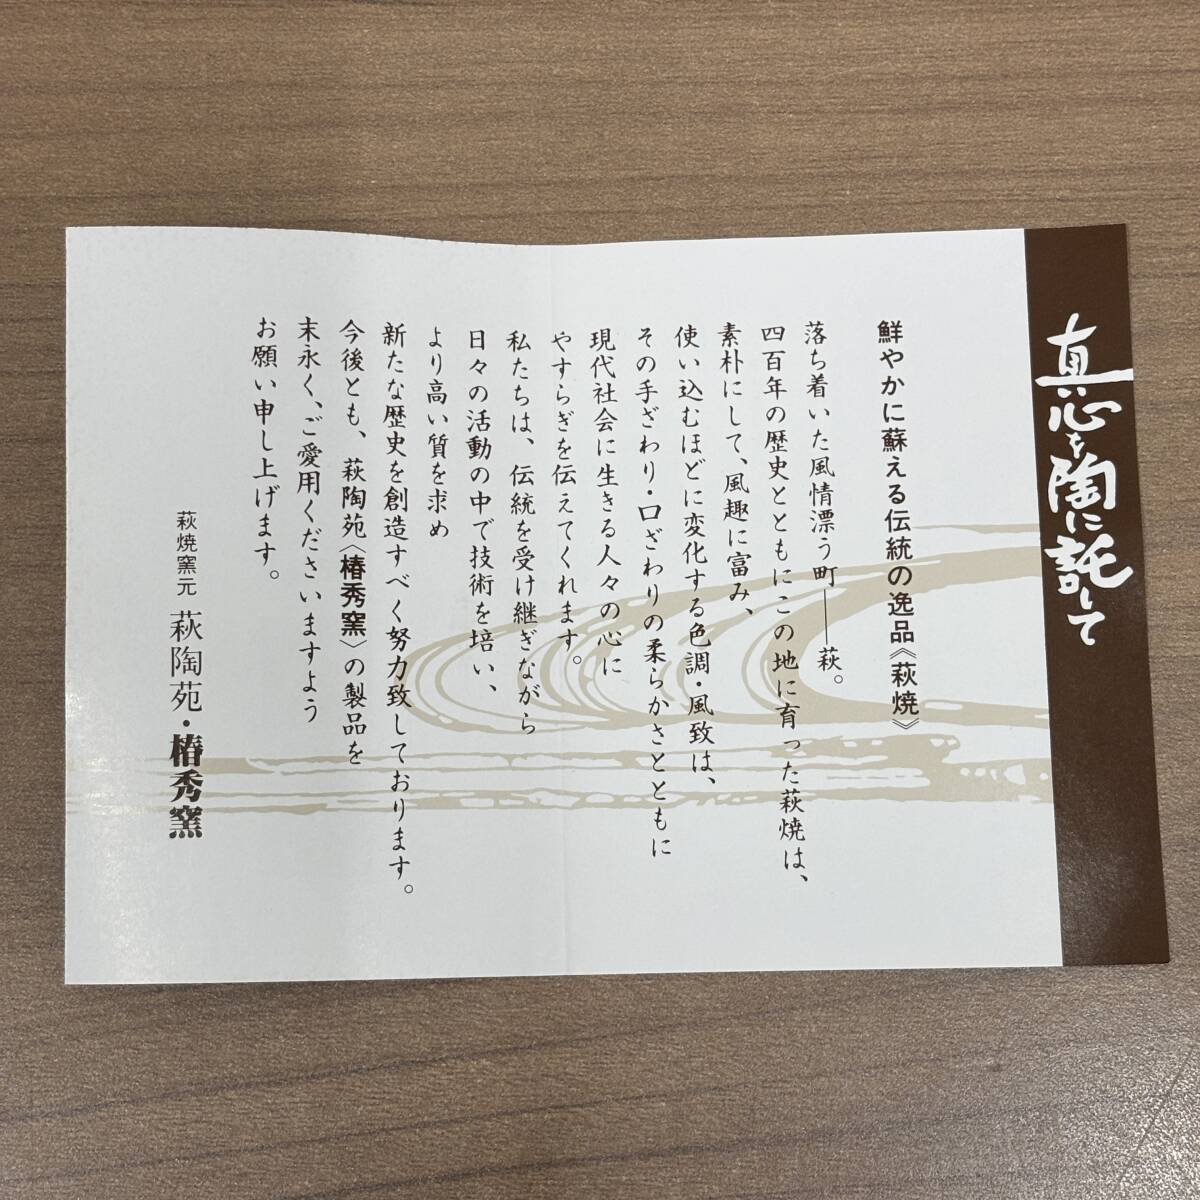 真心を陶に託して
鮮やかに蘇える伝統の逸品《萩焼》
落ち着いた風情漂う町――萩。
四百年の歴史とともにこの地に育った萩焼は、
素朴にして、風趣に富み、
使い込むほどに変化する色調・風致は、
その手ざわり・口ざわりの柔らかさとともに
現代社会に生きる人々の心に
やすらぎを伝えてくれます。
私たちは、伝統を受け継ぎながら
日々の活動の中で技術を培い、
より高い質を求め
新たな歴史を創造すべく努力致しております。
今後とも、萩陶苑〈椿秀窯〉の製品を
末永く、ご愛用くださいますよう
お願い申し上げます。
萩焼窯元 萩陶苑・椿秀窯